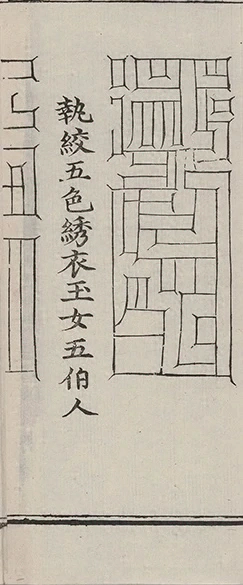 執絞五色綉衣玉女五伯人